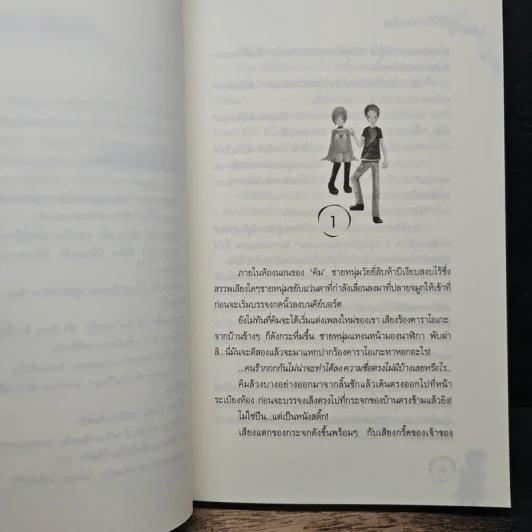 1
ภายในห้องนอนของ 'คิม' ชายหนุ่มวัยยี่สิบห้าปีเงียบสงบไร้ซึ่ง
สรรพเสียงใดๆชายหนุ่มขยับแว่นตาที่กำลังเลื่อนลงมาที่ปลายจมูกให้เข้าที่
ก่อนจะเริ่มบรรจงกดนิ้วลงบนคีย์บอร์ด
ยังไม่ทันที่คิมจะได้เริ่มแต่งเพลงใหม่ของเขา เสียงร้องคาราโอเกะ
จากบ้านข้างๆ ก็ดังกระหึ่มขึ้น ชายหนุ่มแหงนหน้ามองนาฬิกา พับผ่า
สิ..นี่มันจะตีสองแล้วจะมาแหกปากร้องคาราโอเกะหาหอกอะไร!
...คนร้ากกกกันไม่น่าจะทำได้ลง ความซื่อตรงไม่มีบ้างเลยหรือไร...
คิมล้วงบางอย่างออกมาจากลิ้นชักแล้วเดินตรงออกไปที่หน้า
ระเบียงห้อง ก่อนจะบรรจงเล็งตรงไปที่กระจกของบ้านตรงข้ามแล้วยิง!
ไม่ใช่ปืน...แต่เป็นหนังสติ๊ก!
เสียงแตกของกระจกดังขึ้นพร้อมๆ กับเสียงกรี๊ดของเจ้าของ